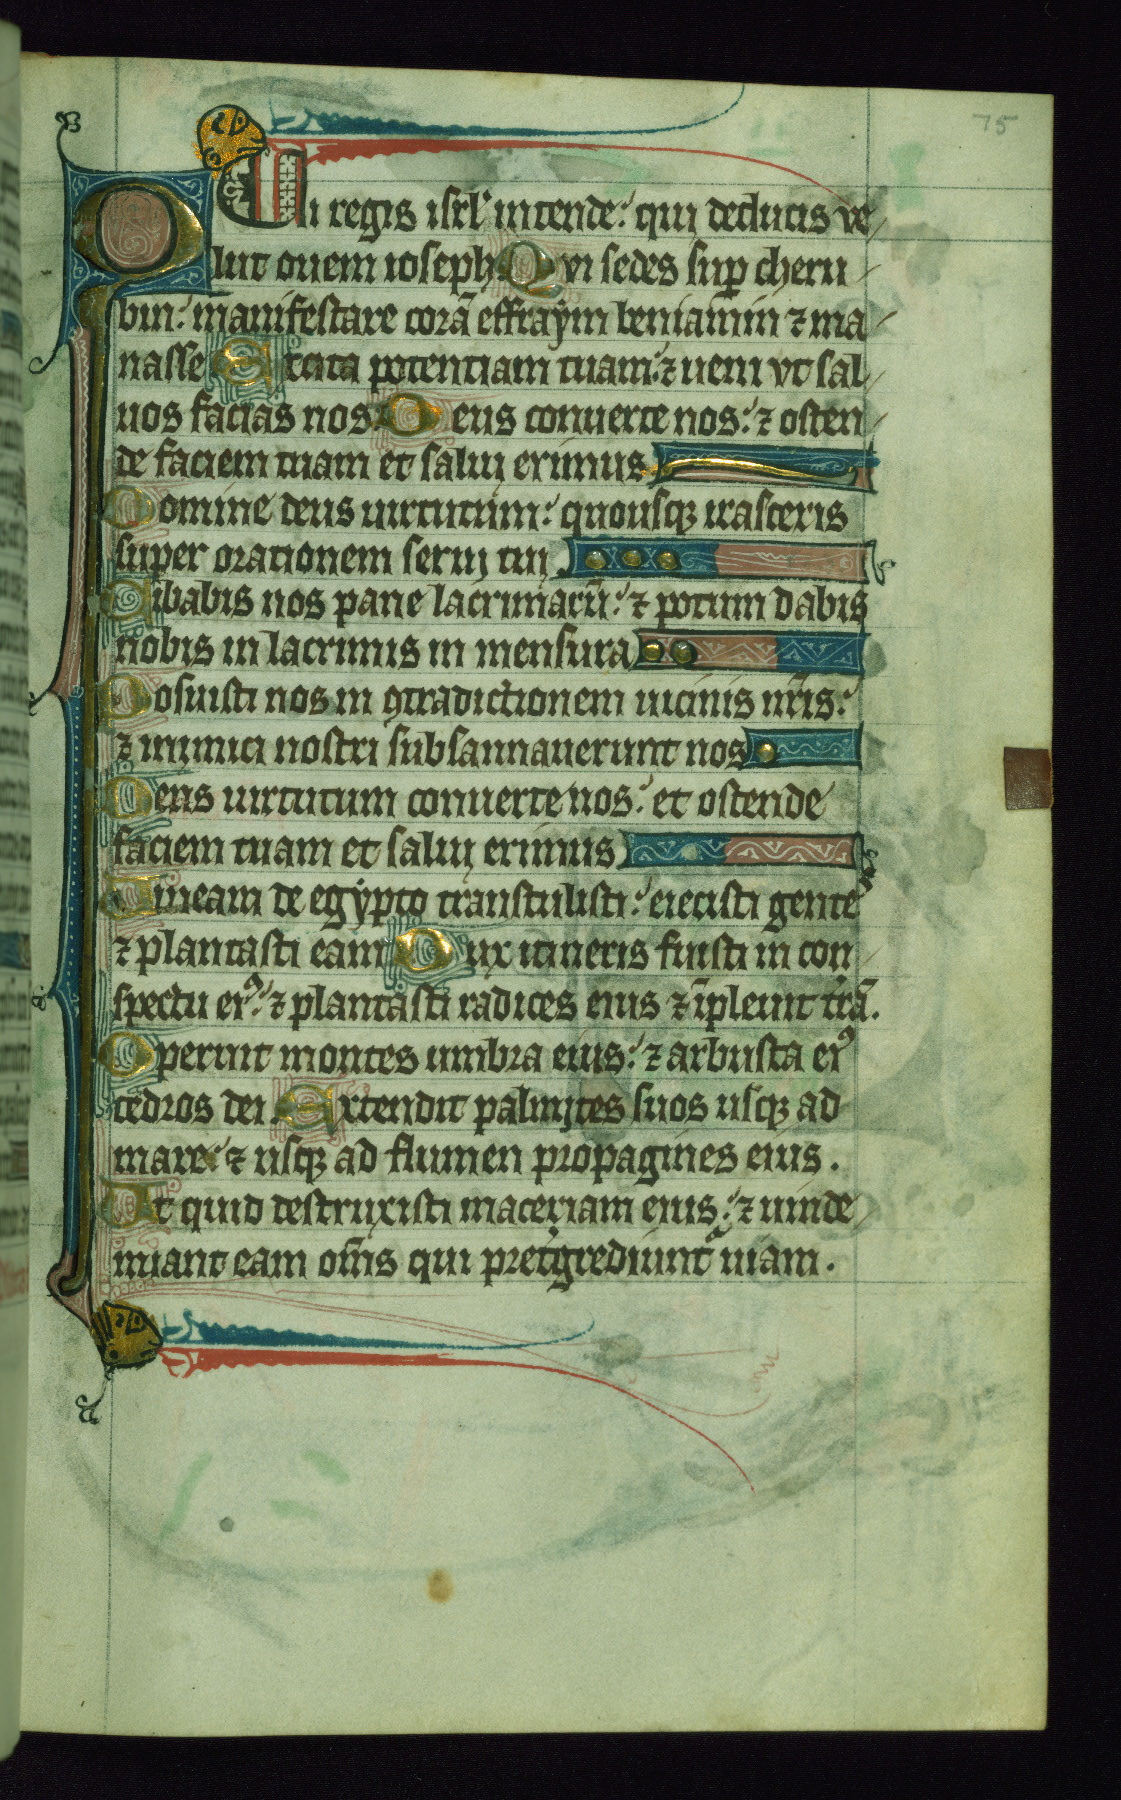 75
Qui regis isrl' intende: qui deducis ve
lut ouem ioseph Qvi sedes sup cheru
bin: manifestare corā effraẏm beniamin ⁊ ma
nasse Excita potentiam tuam: ⁊ ueni vt sal
uos facias nos. Deus conuerte nos: ⁊ osten
de faciem tuam et salui erimus
Domine deus uirtutum: quousqꝫ irasceris
super orationem serui tui
Cibabis nos pane lacrimarū: ⁊ potum dabis
nobis in lacrimis in mensura
Posuisti nos in ꝯtradictionem uicinis nr̄is:
⁊ inimici nostri subsannauerunt nos
Deus uirtutum conuerte nos: et ostende
faciem tuam et salui erimus
Vineam de egẏpto transtulisti: eiecisti gente
⁊ plantasti eam Dux itineris fuisti in con
spectu eiꝰ: ⁊ plantasti radices eius ⁊ īpleuit tr̄ā.
Operuit montes umbra eius: ⁊ arbusta eiꝰ
cedros dei. Extendit palmites suos usqꝫ ad
mare: ⁊ usqꝫ ad flumen propagines eius.
Vt quid destruxisti maceriam eius: ⁊ uinde
miant eam om̄s qui pretͥgrediuntᵃ uiam.